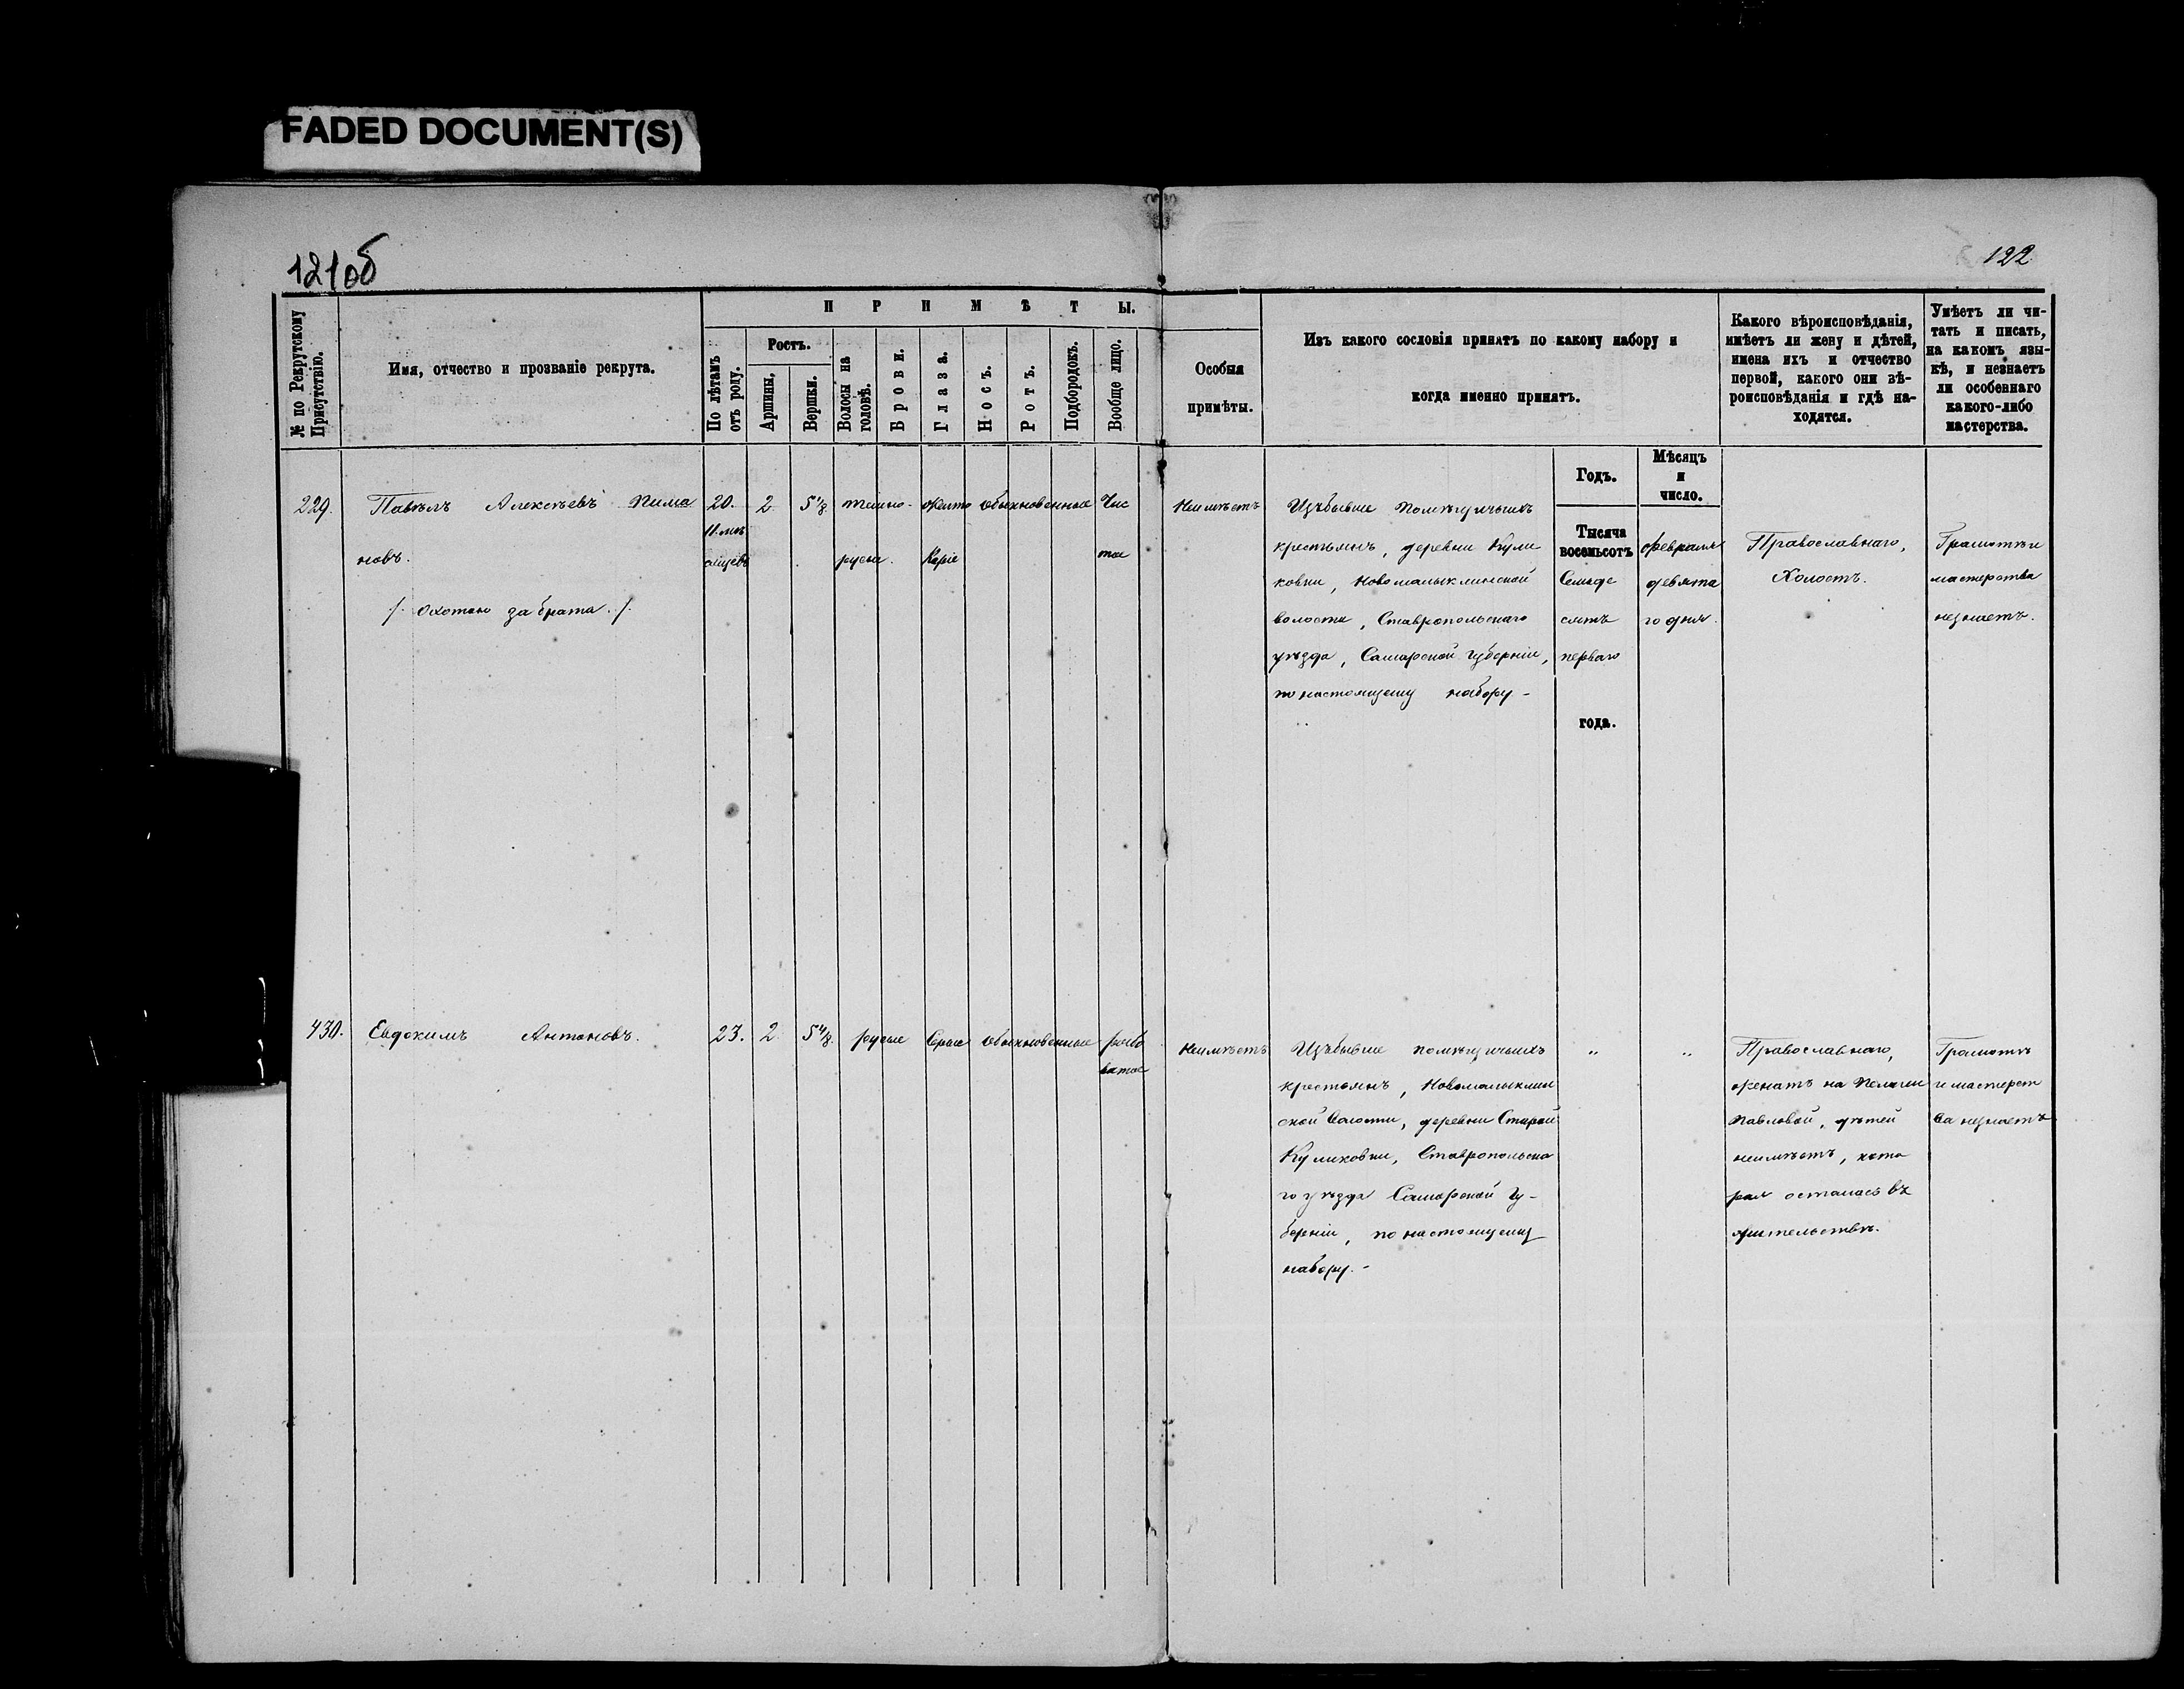 FADED DOCUMENT(S)
121об
122
№ по Рекрутскому Присутствію.
Имя, отчество и прозваніе рекрута.
ПРИМѢТЫ.
По лѣтамъ отъ роду.
Ростъ.
Аршины.
Вершки.
Волосы на головѣ.
Брови.
Глаза.
Носъ.
Ротъ.
Подбородокъ.
Вообще лицо.
Особыя
примѣты.
Изъ какого сословія принятъ по какому набору и
когда именно принятъ.
Какого вѣроисповѣданія,
имѣетъ ли жену и дѣтей,
имена ихъ и отчество
первой, какого они вѣ-
роисповѣданія и гдѣ на-
ходятся.
Умѣетъ ли чи-
тать и писать,
на какомъ язы-
кѣ, и незнаетъ
ли особеннаго
какого-либо
мастерства.
Годъ.
Мѣсяцъ
и
число.
229.
Павѣлъ Алексѣевъ Пима
новъ.
/. Охотою за брата. /.
20.
11. мѣ
сяцевъ
2
5 4/8
темно-
русы.
желто
Карiе
обыкновенные
Чис
тое
Неимѣетъ
Изъбывше помѣщичьихъ
крестьянъ, деревни Кули
ковки, Новомалыклинской
волости, Ставропольскаго
уѣзда, Самарской Губерніи,
по настоящему набору -
Тысяча
восемьсотъ
Семьде
сятъ
перваго
года.
февраля
девята
го дня.
Православнаго,
Холостъ.
Грамотѣ и
мастерства
незнаетъ.
430.
Евдокимъ Антоновъ.
23.
2
5 4/8.
русые
Серые
обыкновенные
рябо
ватое
Неимѣетъ
Изъбывше помѣщичьихъ
крестьянъ, Новомалыклин
ской Волости, деревни Старой
Куликовки, Ставропольска
го уѣзда Самарской Гу-
берніи, по настоящему
набору. -
"
"
Православнаго,
женатъ на Пелагеи
Павловой, дѣтей
неимѣетъ, кото
рая осталась въ
жительствѣ.
Грамотѣ
и мастерст
ва незнаетъ